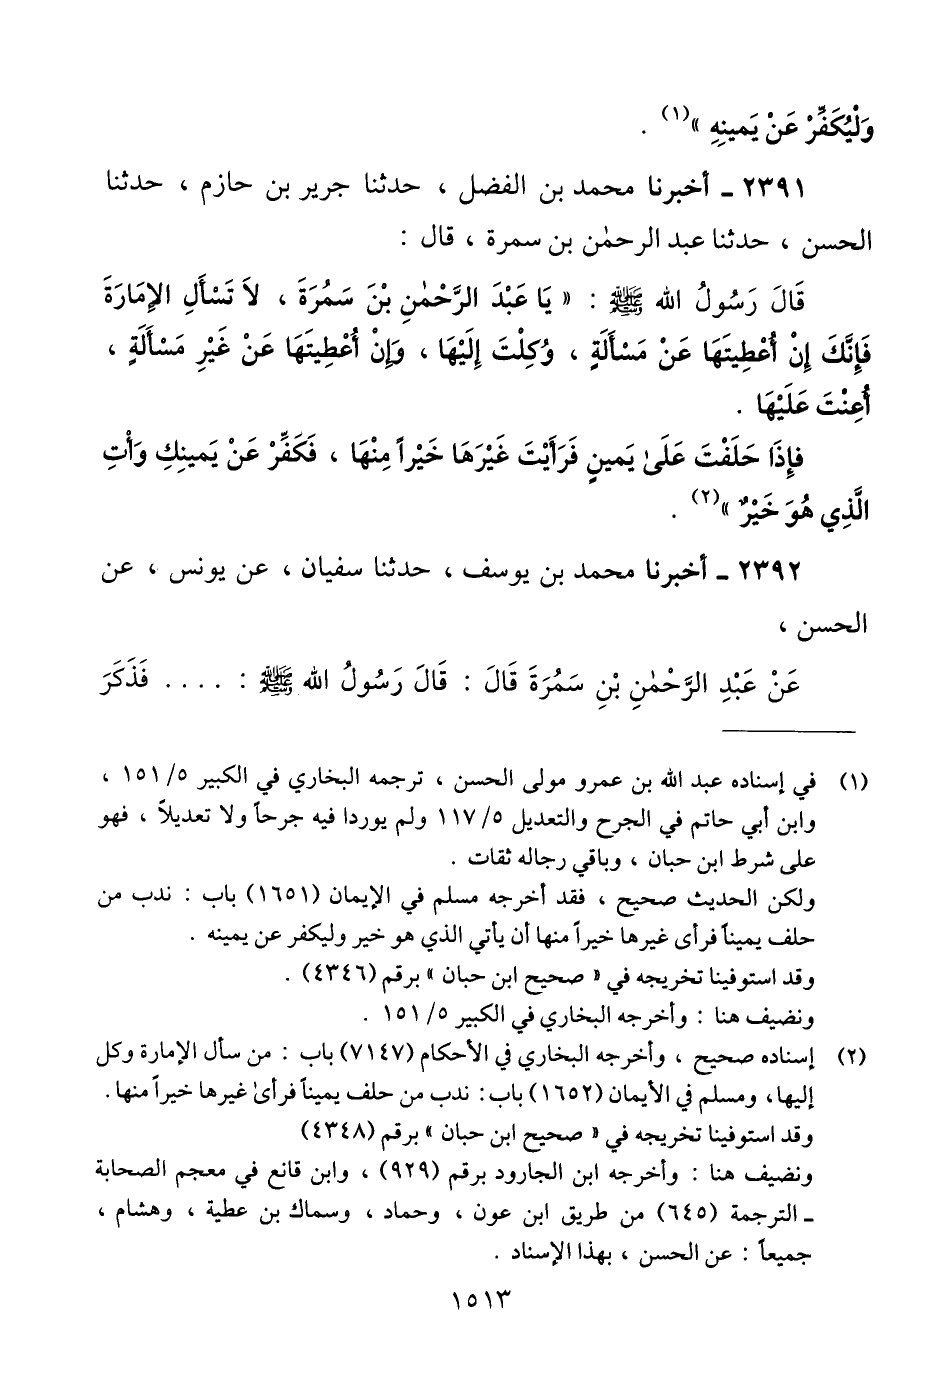 وَلْيُكَفِّرْ عَنْ يَمينِهِ »(١) .
٢٣٩١ ـ أخبرنا محمد بن الفضل ، حدثنا جرير بن حازم ، حدثنا
الحسن ، حدثنا عبد الرحمٰن بن سمرة ، قال :
قَالَ رَسُولُ الله ﷺ : « يَا عَبْدَ الرَّحْمٰنِ بْنَ سَمُرَةَ ، لاَ تَسْأَلِ الإِمَارَةَ
فَإِنَّكَ إِنْ أُعْطِيتَهَا عَنْ مَسْأَلَةٍ ، وُكِلْتَ إِلَيْهَا ، وَإِنْ أُعْطِيتَهَا عَنْ غَيْرِ مَسْأَلَةٍ ،
أُعِنْتَ عَلَيْهَا .
فَإِذَا حَلَفْتَ عَلَىٰ يَمينٍ فَرَأَيْتَ غَيْرَهَا خَيْراً مِنْهَا ، فَكَفِّرْ عَنْ يَمينِكِ وَأْتِ
الَّذِي هُوَ خَيْرٌ »(٢) .
٢٣٩٢ ـ أخبرنا محمد بن يوسف ، حدثنا سفيان ، عن يونس ، عن
الحسن ،
عَنْ عَبْدِ الرَّحْمٰنِ بْنِ سَمُرَةَ قَالَ : قَالَ رَسُولُ الله ﷺ : .... فَذَكَرَ
(١) في إسناده عبد الله بن عمرو مولى الحسن ، ترجمه البخاري في الكبير ٥/ ١٥١ ،
وابن أبي حاتم في الجرح والتعديل ٥/ ١١٧ ولم يوردا فيه جرحاً ولا تعديلاً ، فهو
على شرط ابن حبان ، وباقي رجاله ثقات .
ولكن الحديث صحيح ، فقد أخرجه مسلم في الإيمان (١٦٥١) باب : ندب من
حلف يميناً فرأى غيرها خيراً منها أن يأتي الذي هو خير وليكفر عن يمينه .
وقد استوفينا تخريجه في « صحيح ابن حبان » برقم (٤٣٤٦) .
ونضيف هنا : وأخرجه البخاري في الكبير ٥/ ١٥١ .
(٢) إسناده صحيح ، وأخرجه البخاري في الأحكام (٧١٤٧) باب : من سأل الإمارة وكل
إليها، ومسلم في الأيمان (١٦٥٢) باب: ندب من حلف يميناً فرأىٰ غيرها خيراً منها.
وقد استوفينا تخريجه في « صحيح ابن حبان » برقم (٤٣٤٨)
ونضيف هنا : وأخرجه ابن الجارود برقم (٩٢٩) ، وابن قانع في معجم الصحابة
ـ الترجمة (٦٤٥) من طريق ابن عون ، وحماد ، وسماك بن عطية ، وهشام ،
جميعاً : عن الحسن ، بهذا الإسناد .
١٥١٣